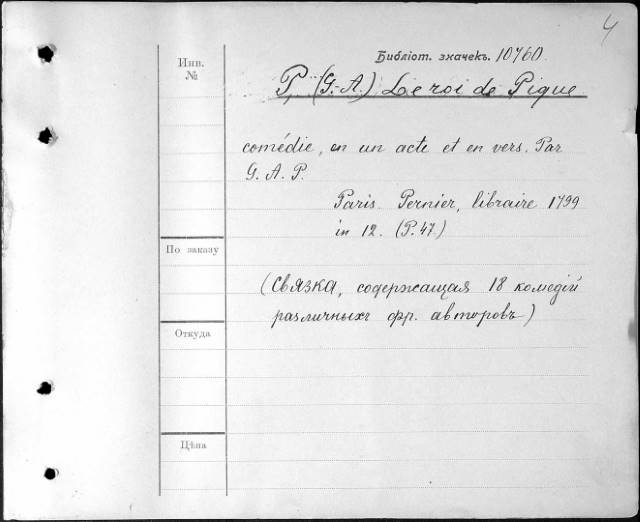 4
Инв.
№
Библіот. значекъ. 10760.
P, (G.-A.) Le roi de Pique
comédie, en un acte et en vers. Par
G. A. P.
Paris. Pernier, libraire 1799
in 12. (P. 47.)
По заказу
(Связка, содержащая 18 комедій
различныхъ фр. авторовъ)
Откуда
Цѣна